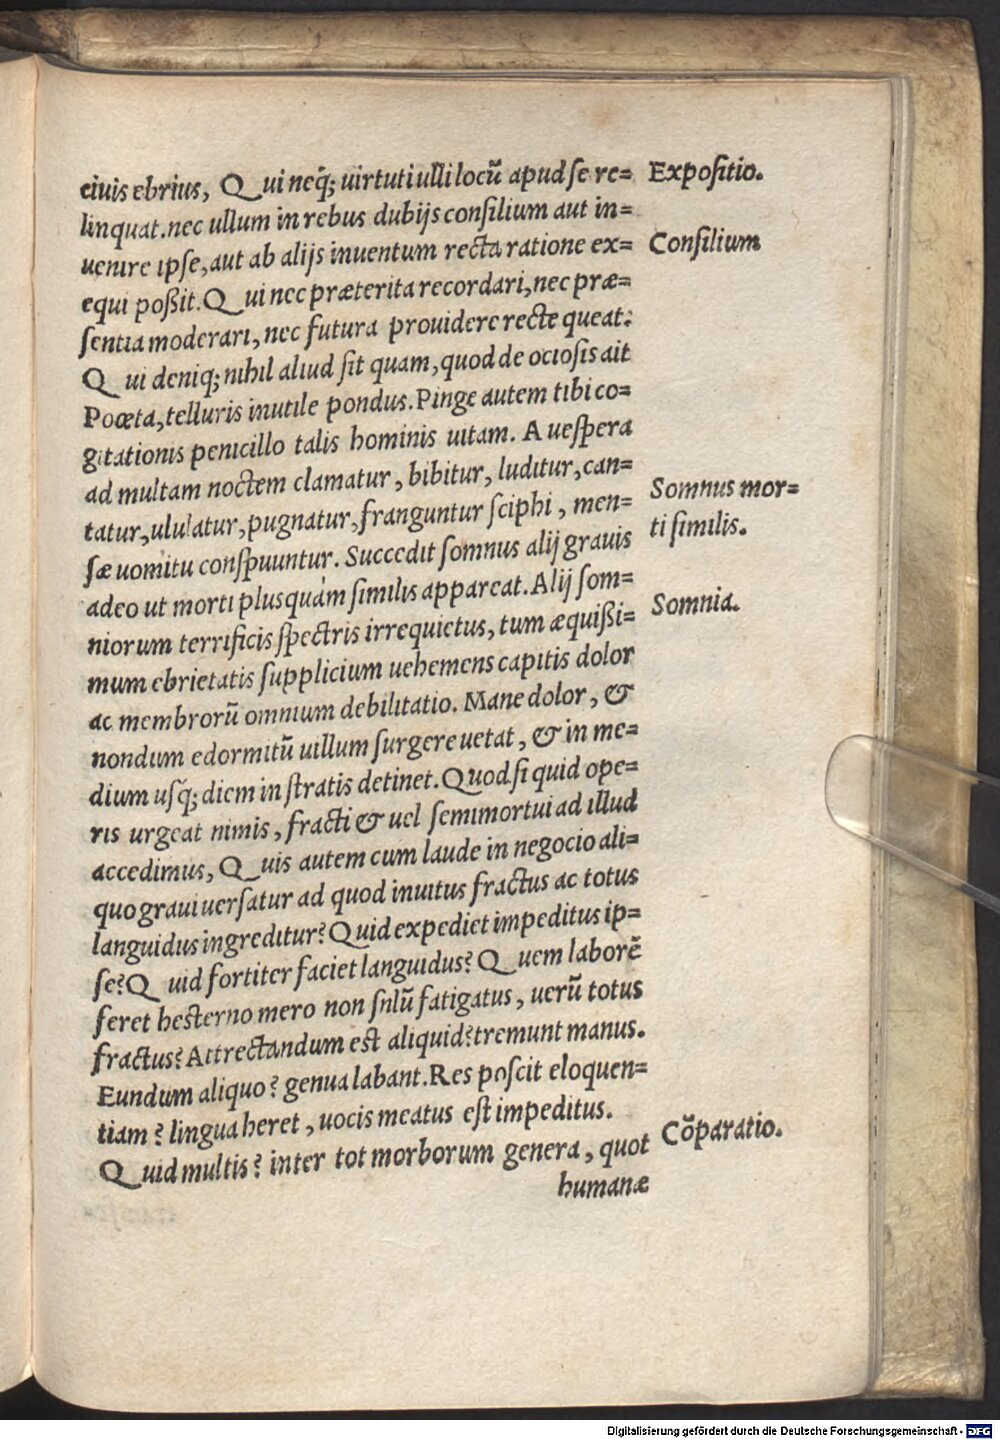 ciuis ebrius, Qui neq́; uirtuti ulli locũ apud se re= Expositio.
linquat. nec ullum in rebus dubijs consilium aut in=
uenire ipse, aut ab alijs inuentum recta ratione ex= Consilium
equi poßit. Qui nec præterita recordari, nec præ=
sentia moderari, nec futura prouidere recte queat:
Qui deniq; nihil aliud sit quam, quod de ociosis ait
Poœta, telluris inutile pondus. Pinge autem tibi co=
gitationis penicillo talis hominis uitam. A uespera
ad multam noctem clamatur, bibitur, luditur, can=
tatur, ululatur, pugnatur, franguntur sciphi, men= Somnus mor=
sæ uomitu conspuuntur. Succedit somnus alij grauis ti similis.
adeo ut morti plusquàm similis appareat. Alij som=
niorum terrificis spectris irrequietus, tum æquißi= Somnia.
mum ebrietatis supplicium uehemens capitis dolor
ac membrorũ omnium debilitatio. Mane dolor, &
nondum edormitũ uillum surgere uetat, & in me=
dium usq́; diem in stratis detinet. Quod si quid ope=
ris urgeat nimis, fracti & uel semimortui ad illud
accedimus, Quis autem cum laude in negocio ali=
quo graui uersatur ad quod inuitus fractus ac totus
languidus ingreditur? Quid expediet impeditus ip=
se? Quid fortiter faciet languidus? Quem laborẽ
feret hesterno mero non snlũ fatigatus, uerũ totus
fractus? Attrectandum est aliquid? tremunt manus.
Eundum aliquo? genua labant. Res poscit eloquen=
tiam? lingua heret, uocis meatus est impeditus.
Quid multis? inter tot morborum genera, quot Cõparatio.
humanæ
Digitalisierung gefördert durch die Deutsche Forschungsgemeinschaft - DFG